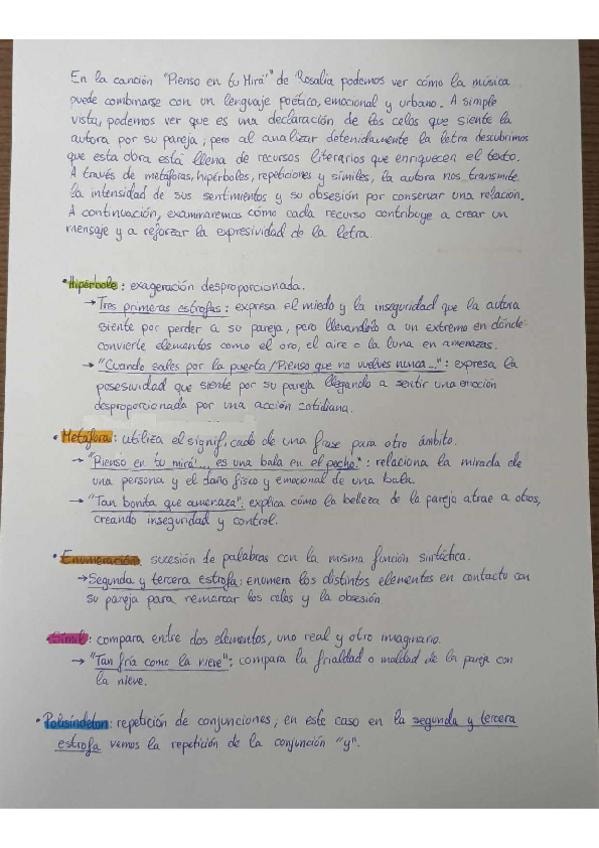 En la canción "Pienso en tu Mirá" de Rosalía podemos ver cómo la música
puede combinarse con un lenguaje poético, emocional y urbano. A simple
vista, podemos ver que es una declaración de los celos que siente la
autora por su pareja, pero al analizar detenidamente la letra descubrimos
que esta obra está llena de recursos literarios que enriquecen el texto.
A través de metáforas, hipérboles, repeticiones y símiles, la autora nos transmite
la intensidad de sus sentimientos y su obsesión por conservar una relación.
A continuación, examinaremos cómo cada recurso contribuye a crear un
mensaje y a reforzar la expresividad de la letra.
• Hipérbole: exageración desproporcionada.
→ Tres primeras estrofas: expresa el miedo y la inseguridad que la autora
siente por perder a su pareja, pero llevándolo a un extremo en dónde
convierte elementos como el oro, el aire o la luna en amenazas.
→ "Cuando sales por la puerta/Pienso que no vuelves nunca...": expresa la
posesividad que siente por su pareja llegando a sentir una emoción
desproporcionada por una acción cotidiana.
• Metáfora: utiliza el significado de una frase para otro ámbito.
→ "Pienso en tu mirá... es una bala en el pecho": relaciona la mirada de
una persona y el daño físico y emocional de una bala.
→ "Tan bonita que amenaza": explica cómo la belleza de la pareja atrae a otros,
creando inseguridad y control.
• Enumeración: sucesión de palabras con la misma función sintáctica.
→ Segunda y tercera estrofa: enumera los distintos elementos en contacto con
su pareja para remarcar los celos y la obsesión.
• Símil: compara entre dos elementos, uno real y otro imaginario.
→ "Tan fría como la nieve": compara la frialdad o maldad de la pareja con
la nieve.
• Polisíndeton: repetición de conjunciones, en este caso en la segunda y tercera
estrofa vemos la repetición de la conjunción "y".